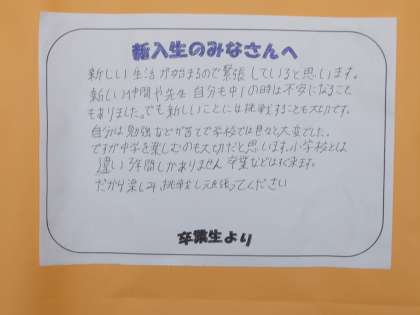 新入生のみなさんへ
新しい生活が始まるので緊張していると思います。
新しい仲間や先生 自分も中1の時は不安になること
もありました。でも新しいことには挑戦することも大切です。
自分は勉強などが苦手で学校では色々と大変でした。
ですが中学を楽しむのも大切だと思います。小学校とは
違い3年間しかありません 卒業などはすぐ来ます。
だから楽しみ、挑戦し頑張ってください
卒業生より